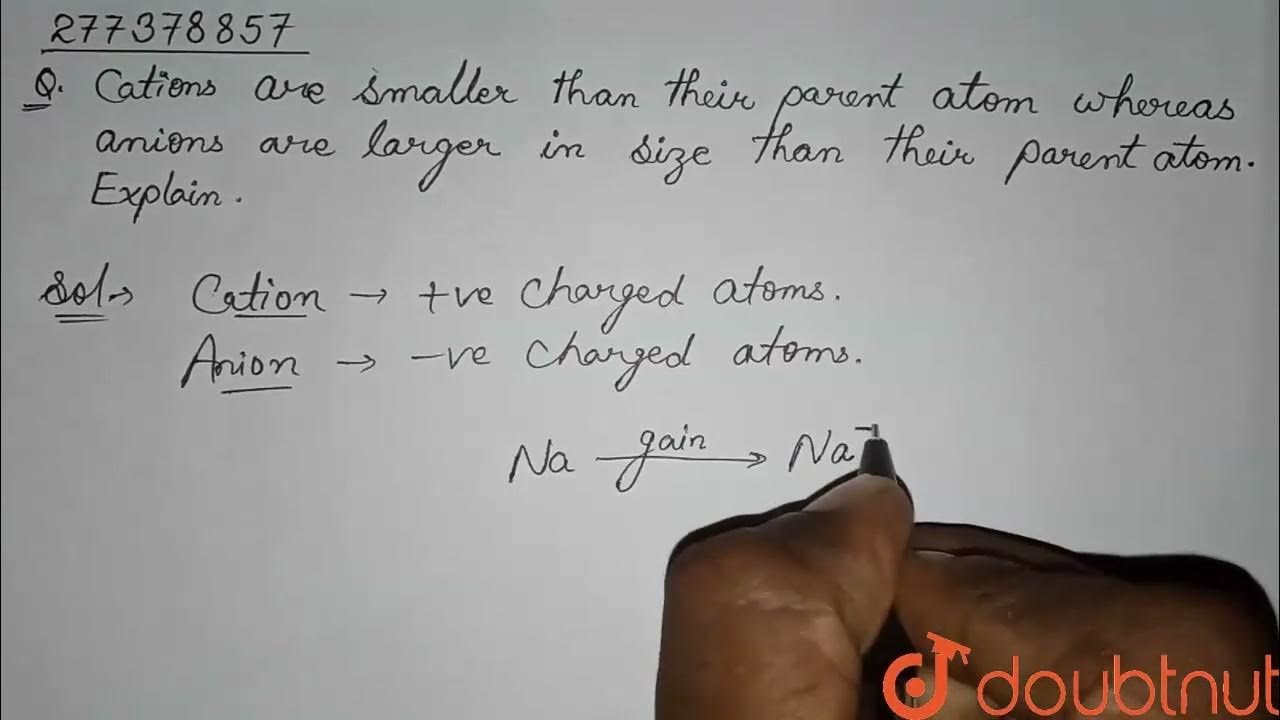 277378857
Q. Cations are smaller than their parent atom whereas
anions are larger in size than their parent atom.
Explain.
Sol→ Cation → +ve charged atoms.
Anion → -ve charged atoms.
Na gain→ Na
doubtnut